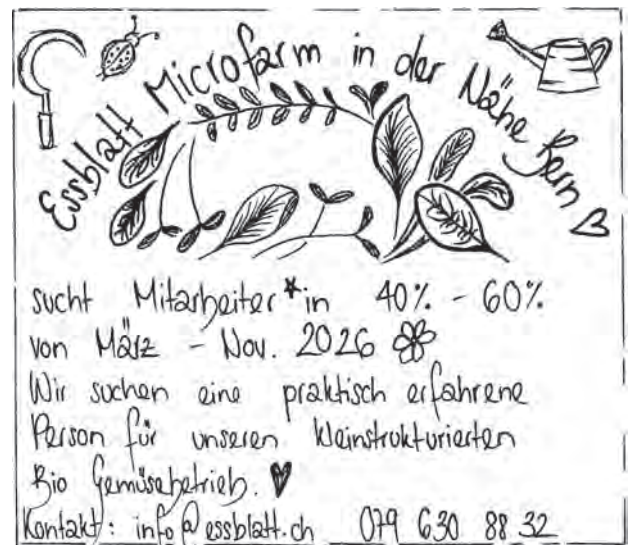 Essblatt Microfarm in der Nähe Bern
sucht Mitarbeiter*in 40% - 60%
von März - Nov. 2026
Wir suchen eine praktisch erfahrene
Person für unseren kleinstrukturierten
Bio Gemüsebetrieb. ♥
Kontakt: info@essblatt.ch 079 630 88 32